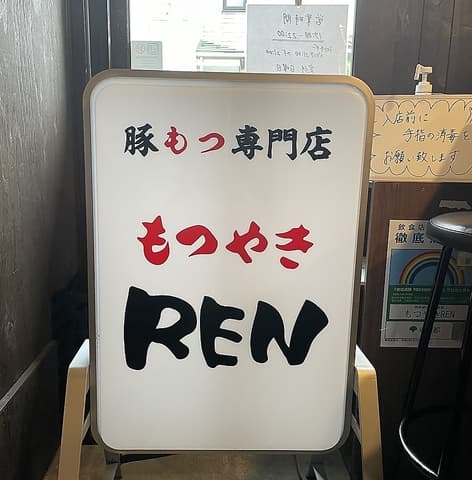 営業時間
豚もつ専門店
もつやき
REN
入店前に
手指の消毒を
お願い致します
飲食店
徹底
もつやきREN
都